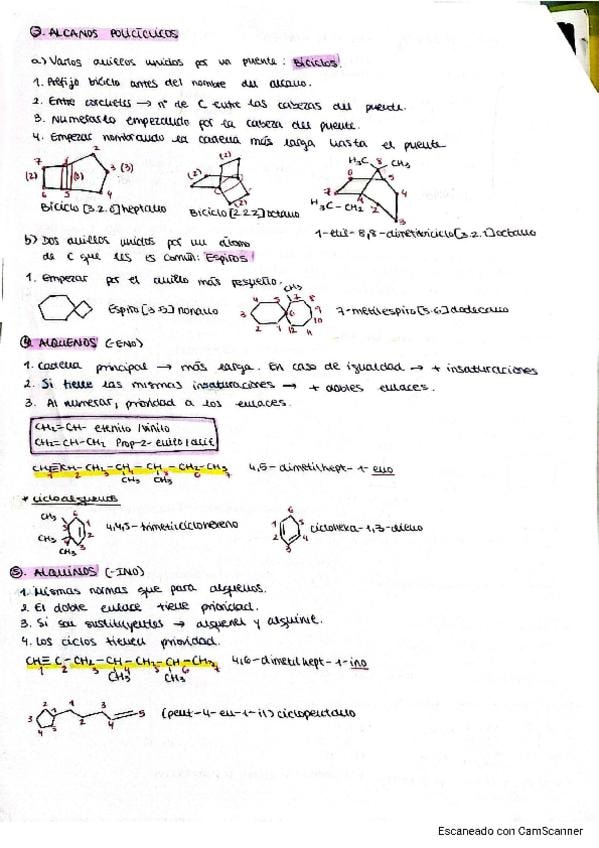 ③. ALCANOS POLICÍCLICOS
a) Varios anillos unidos por un puente: Biciclos.
1. Prefijo biciclo antes del nombre del alcano.
2. Entre corchetes → nº de C entre las cabezas del puente.
3. Numerarlo empezando por la cabeza del puente.
4. Empezar nombrando la cadena más larga hasta el puente
Biciclo[3.2.0]heptano
Biciclo[2.2.2]octano
H₃C 8 CH₃
H₃C-CH₂
1-etil-8,8-dimetilbiciclo[3.2.1]octano
b) Dos anillos unidos por un átomo
de C que les es común: Espiros
1. Empezar por el anillo más pequeño.
Espiro[3.5]nonano
CH₃
7-metilespiro[5.6]dodecano
④. ALQUENOS (-ENO)
1. Cadena principal → más larga. En caso de igualdad → + insaturaciones
2. Si tiene las mismas insaturaciones → + dobles enlaces.
3. Al numerar, prioridad a los enlaces.
CH₂=CH- etenilo/vinilo
CH₂=CH-CH₂ Prop-2-enilo/alil
CH-CH₂-CH-CH-CH₂-CH₃
1 2 3 4 5 6 7
CH₃ CH₃
4,5-dimetilhept-1-eno
* cicloalquenos
CH₃
CH₃
CH₃
4,4,5-trimetilciclohexeno
ciclohexa-1,3-dieno
⑤. ALQUINOS (-INO)
1. Mismas normas que para alquenos.
2. El doble enlace tiene prioridad.
3. Si son sustituyentes → alquenil y alquinil.
4. Los ciclos tienen prioridad.
CH≡C-CH₂-CH-CH₂-CH-CH₃
1 2 3 4 5 6 7
CH₃ CH₃
4,6-dimetilhept-1-ino
(pent-4-en-1-il)ciclopentano
Escaneado con CamScanner